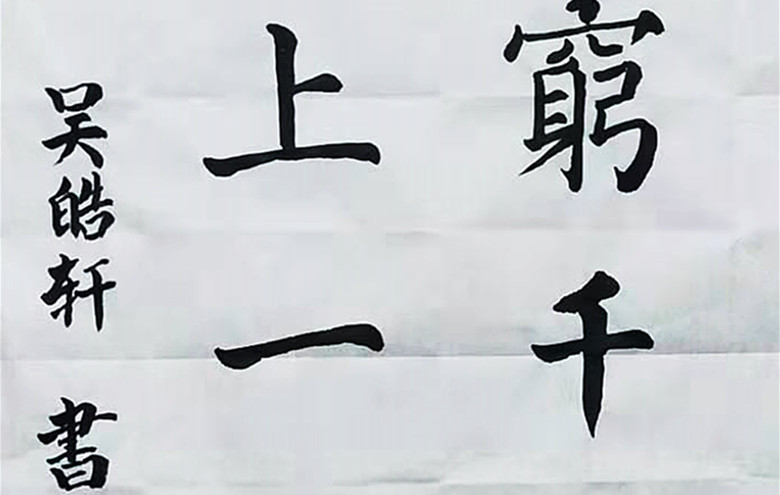 窮千
上一
吴皓轩 書